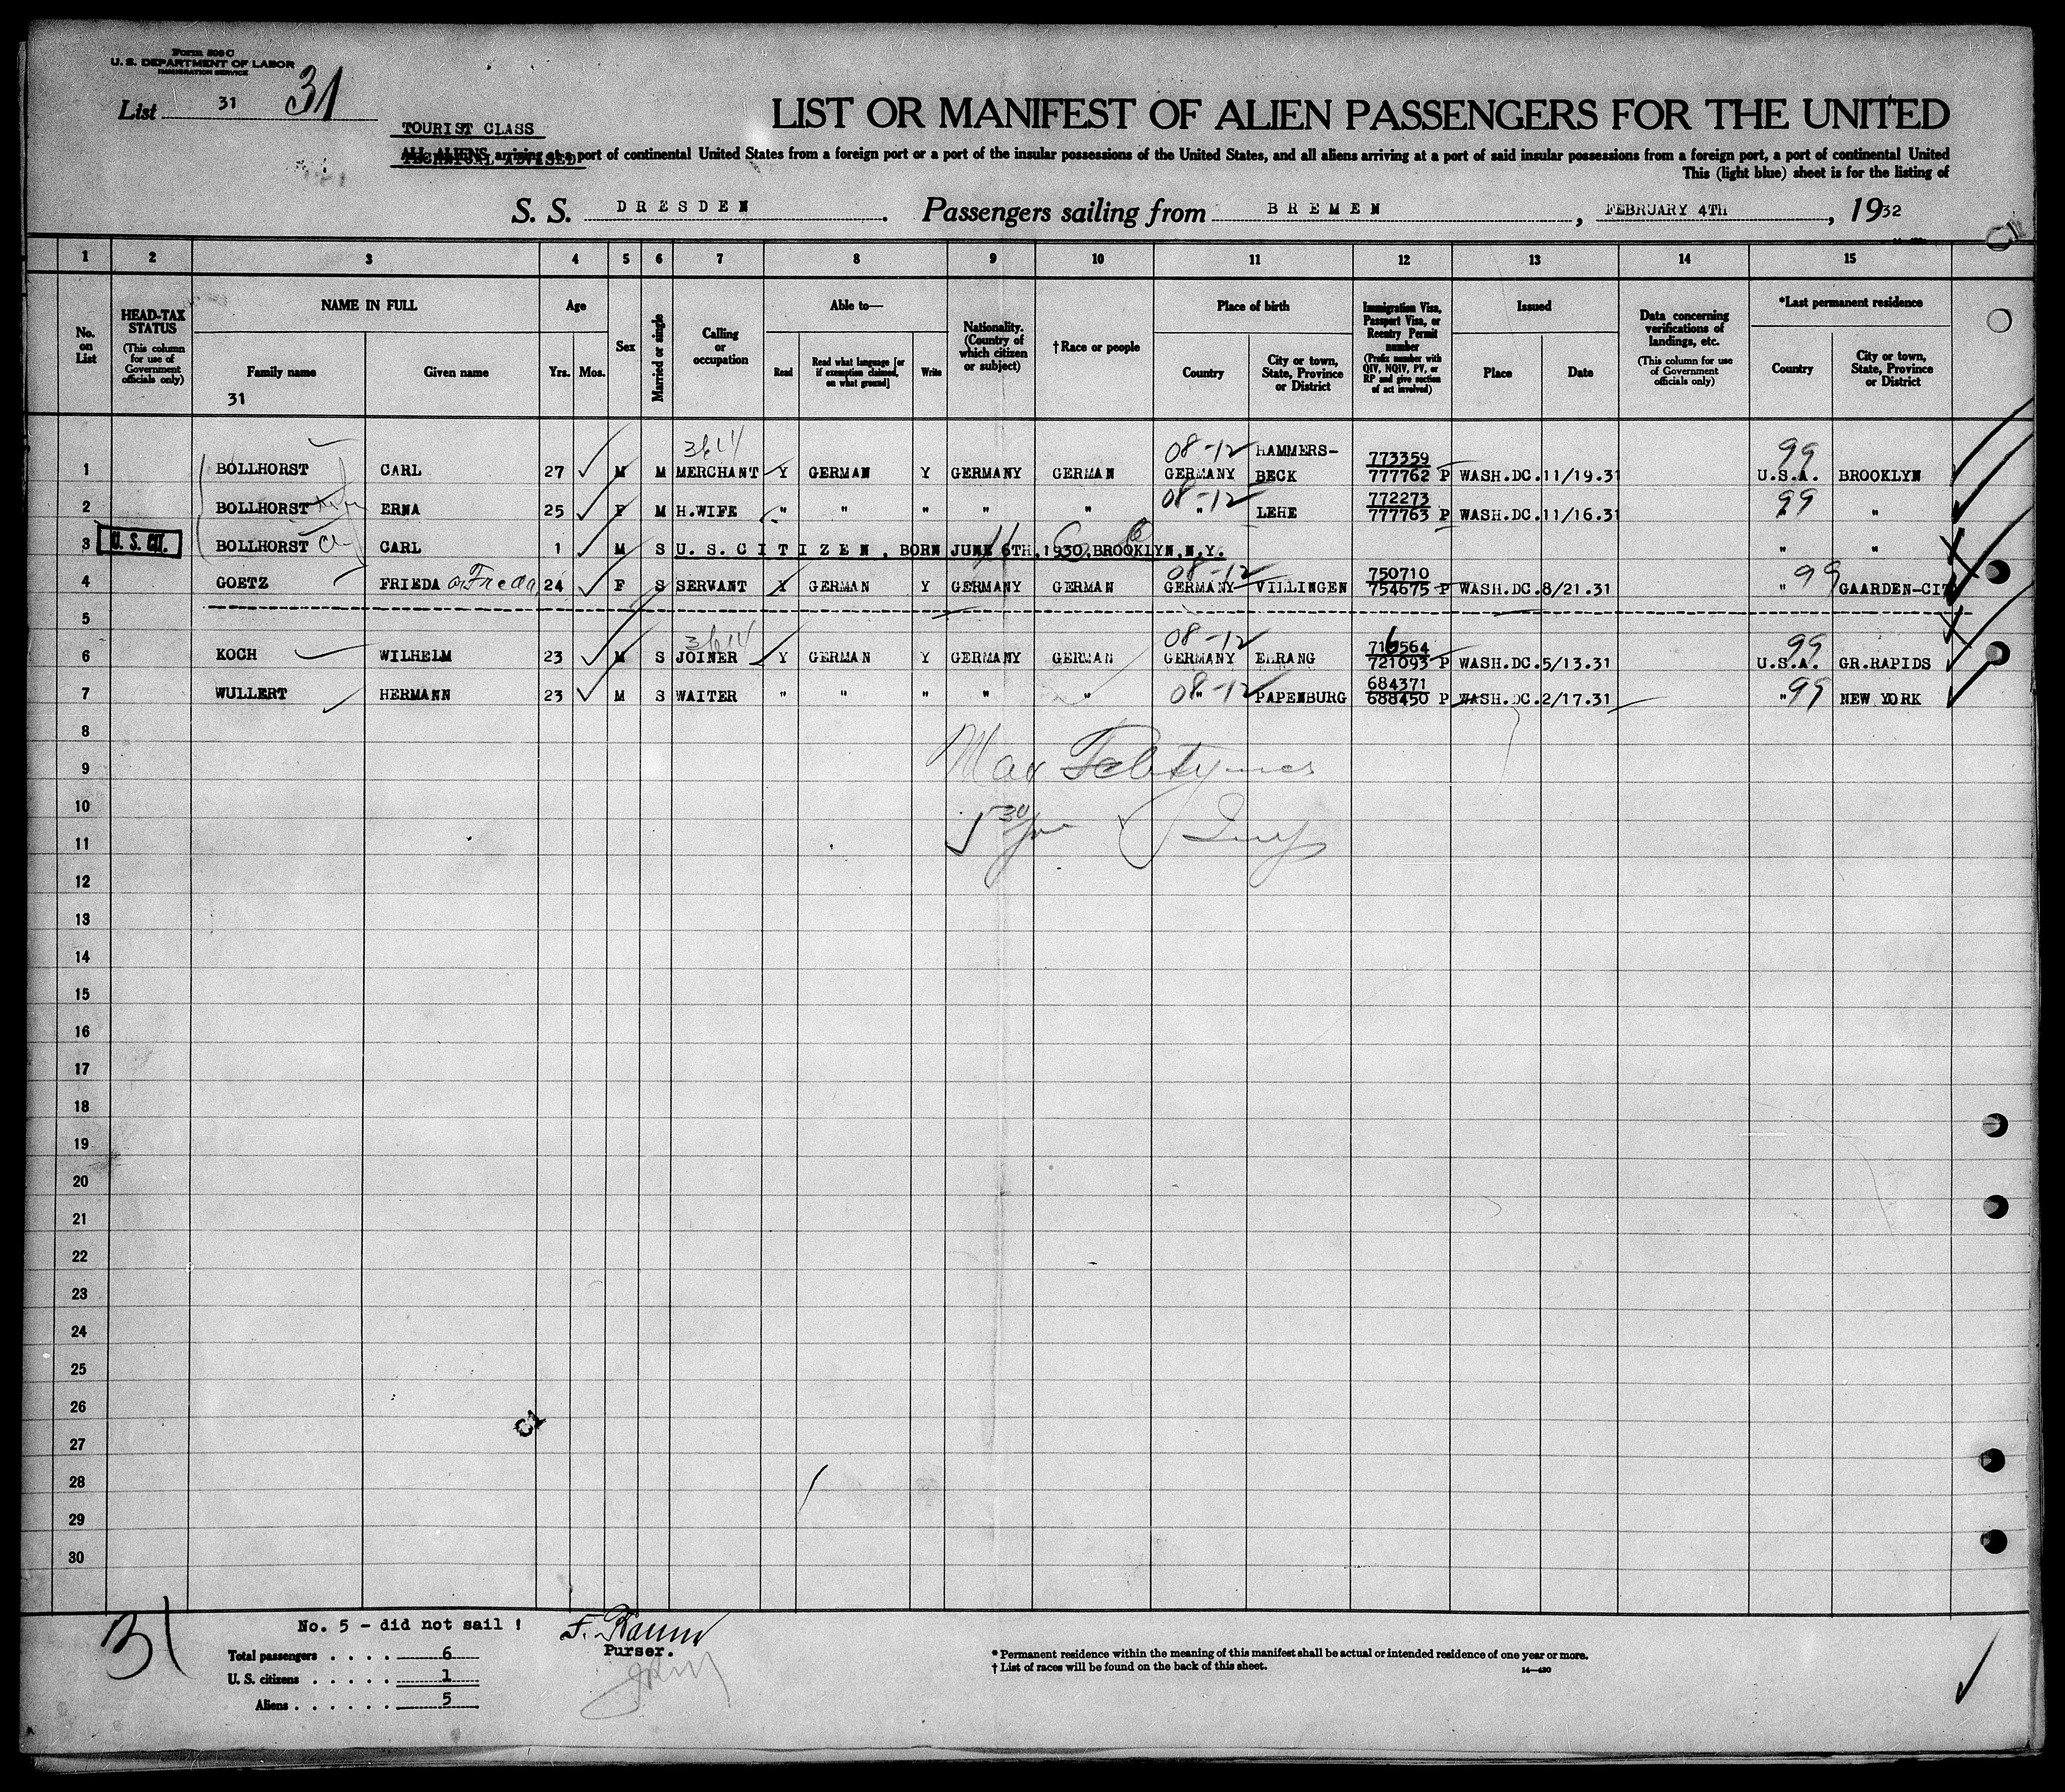 Form 500 C
U. S. DEPARTMENT OF LABOR
IMMIGRATION SERVICE
List 31 31
TOURIST CLASS
LIST OR MANIFEST OF ALIEN PASSENGERS FOR THE UNITED
ALL ALIENS arriving at a port of continental United States from a foreign port or a port of the insular possessions of the United States, and all aliens arriving at a port of said insular possessions from a foreign port, a port of continental United
This (light blue) sheet is for the listing of
S. S. DRESDEN. Passengers sailing from BREMEN, FEBRUARY 4TH, 1932
1 2 3 4 5 6 7 8 9 10 11 12 13 14 15
No. on List
HEAD-TAX STATUS (This column for use of Government officials only)
NAME IN FULL
Family name
Given name
31
Age
Yrs. Mos.
Sex
Married or single
Calling or occupation
Able to—
Read
Read what language [or if exemption claimed, on what ground]
Write
Nationality. (Country of which citizen or subject)
†Race or people
Place of birth
Country
City or town, State, Province or District
Immigration Visa, Passport Visa, or Reentry Permit number (Prefix number with QIV, NQIV, PV, or RP and give section of act involved)
Issued
Place
Date
Data concerning verifications of landings, etc. (This column for use of Government officials only)
*Last permanent residence
Country
City or town, State, Province or District
1 BOLLHORST CARL 27 M M MERCHANT Y GERMAN Y GERMANY GERMAN 08-12 GERMANY HAMMERS-BECK 773359 777762 P WASH.DC. 11/19.31 99 U.S.A. BROOKLYN
2 BOLLHORST ERNA 25 F M H.WIFE " " " " " 08-12 " LEHE 772273 777763 P WASH.DC. 11/16.31 99 " "
3 U. S. CIT. BOLLHORST CARL 1 M S U.S.CITIZEN, BORN JUNE 6TH,1930,BROOKLYN,N.Y. " "
4 GOETZ FRIEDA or Freda 24 F S SERVANT Y GERMAN Y GERMANY GERMAN 08-12 GERMANY VILLINGEN 750710 754675 P WASH.DC. 8/21.31 " 99 GAARDEN-CIT
5
6 KOCH WILHELM 23 M S JOINER Y GERMAN Y GERMANY GERMAN 08-12 GERMANY EHRANG 716564 721093 P WASH.DC. 5/13.31 99 U.S.A. GR.RAPIDS
7 WULLERT HERMANN 23 M S WAITER " " " " " 08-12 " PAPENBURG 684371 688450 P WASH.DC. 2/17.31 " 99 NEW YORK
8
9
10
11
12
13
14
15
16
17
18
19
20
21
22
23
24
25
26
27
28
29
30
31
No. 5 - did not sail !
Total passengers . . . . 6
U. S. citizens . . . . . 1
Aliens . . . . . . 5
Purser.
* Permanent residence within the meaning of this manifest shall be actual or intended residence of one year or more.
† List of races will be found on the back of this sheet.
14—430